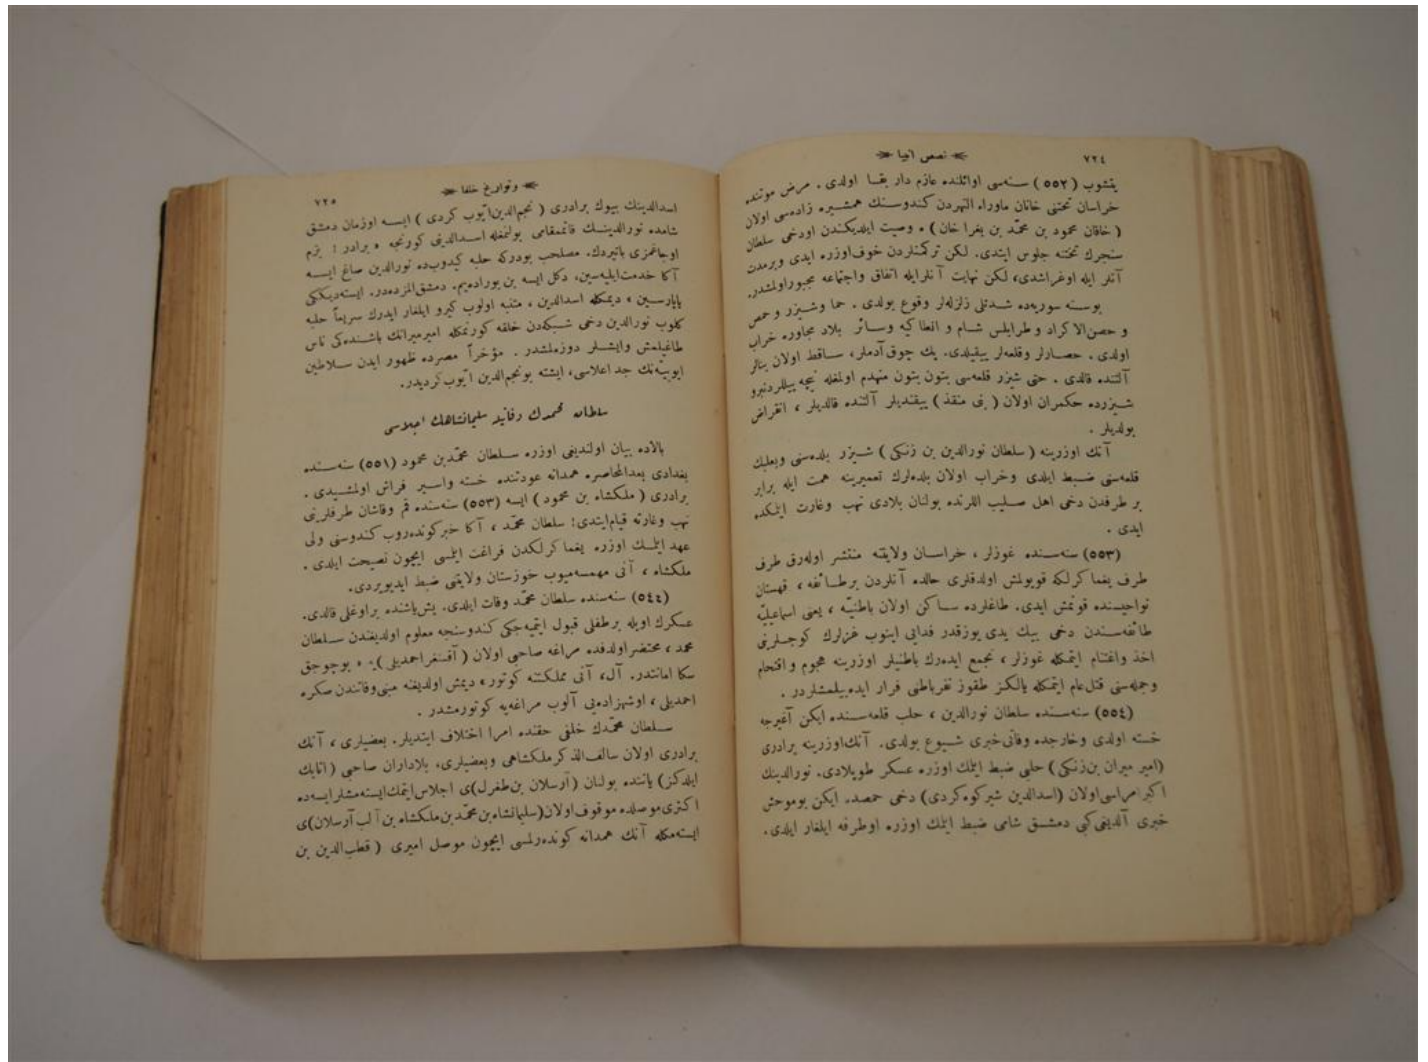 ٧٢٤
قصص انبیا
یتشوب (٥٥٢) سنه‌سی اوائلنده عازم دار بقا اولدی . مرض موتنده
خراسان تختنی خانان ماوراء النهردن کندوسنك همشیره زاده‌سی اولان
( خاقان محمود بن محمّد بن بغرا خان ) ه وصیت ایلدیکندن اودخی سلطان
سنجرك تختنه جلوس ایتدی. لکن ترکمنلردن خوف اوزره ایدی وبرمدت
آنلر ایله اوغراشدی، لکن نهایت آنلرایله اتفاق واجتماعه مجبوراولمشدر.
بوسنه سوریه‌ده شدتلی زلزله‌لر وقوع بولدی . حما وشیزر و حمص
و حصن‌الاکراد و طرابلس شام و انطاکیه وسائر بلاد مجاوره خراب
اولدی . حصارلر وقلعه‌لر ییقیلدی. پك چوق آدملر، ساقط اولان بنالر
آلتنده قالدی . حتی شیزر قلعه‌سی بتون بتون منهدم اولمغله نیچه ییللردنبرو
شیزرده حکمران اولان ( بنی منقذ ) ییقندیلر آلتنده قالدیلر ، انقراض
بولدیلر .
آنك اوزرینه ( سلطان نورالدین بن زنکی ) شیزر بلده‌سنی وبعلبك
قلعه‌سنی ضبط ایلدی وخراب اولان بلده‌لرك تعمیرینه همت ایله برابر
بر طرفدن دخی اهل صلیب اللرنده بولنان بلادی نهب وغارت ایتمکده
ایدی .
(٥٥٣) سنه‌سنده غوزلر ، خراسان ولایتنه منتشر اوله‌رق طرف
طرف یغماکرلکه قویولمش اولدقلری حالده آنلردن برطائفه ، قهستان
نواحیسنده قونمش ایدی. طاغلرده ساکن اولان باطنیّه ، یعنی اسماعیلیّه
طائفه‌سندن دخی بیك یدی یوزقدر فدایی اینوب غزلرك کوچلرینی
اخذ واغتنام ایتمکله غوزلر ، تجمع ایده‌رك باطنیلر اوزرینه هجوم واقتحام
وجمله‌سنی قتل‌عام ایتمکله یالکز طقوز نفرباطنی فرار ایده‌بیلمشلردر .
(٥٥٤) سنه‌سنده سلطان نورالدین ، حلب قلعه‌سنده ایکن آغیرجه
خسته اولدی وخارجده وفاتی خبری شیوع بولدی. آنك اوزرینه برادری
(امیر میران بن زنکی) حلبی ضبط ایتمك اوزره عسکر طوپلادی. نورالدینك
اکبر امراسی اولان (اسدالدین شیرکوه کردی) دخی حمصده ایکن بوموحش
خبری آلدیغی کبی دمشق شامی ضبط ایتمك اوزره اوطرفه ایلغار ایلدی.
٧٢٥
وتواریخ خلفا
اسدالدینك بیوك برادری ( نجم‌الدین ایّوب کردی ) ایسه اوزمان دمشق
شامده نورالدینك قائمقامی بولنمغله اسدالدینی کورنجه « برادر ! بزم
اوجاغمزی باتیردك. مصلحت بودرکه حلبه کیدوب‌ده نورالدین صاغ ایسه
آکا خدمت ایلیه‌سین. دکل ایسه بن بوراده‌یم. دمشق المزده‌در. ایستدیککی
یاپارسین » دیمکله اسدالدین ، متنبه اولوب کیرو ایلغار ایدرك سریعاً حلبه
کلوب نورالدین دخی شبکه‌دن خلقه کورنمکله امیرمیرانك باشنده‌کی ناس
طاغیلمش وایشلر دوزه‌لمشدر . مؤخراً مصرده ظهور ایدن سلاطین
ایوبیّه‌نك جد اعلاسی، ایشته بو نجم‌الدین ایّوب کردیدر.
سلطان محمدك وفاتیله سلیمانشاهك اجلاسی
بالاده بیان اولندیغی اوزره سلطان محمّد بن محمود (٥٥١) سنه‌سنده
بغدادی بعدالمحاصره همدانه عودتنده خسته واسیر فراش اولمشیدی .
برادری ( ملکشاه بن محمود ) ایسه (٥٥٣) سنه‌سنده قم وقاشان طرفلرینی
نهب وغارته قیام ایتدی؛ سلطان محمّد ، آکا خبر کوندروب کندوسنی ولی
عهد ایتمك اوزره یغماکرلکدن فراغت ایتمسی ایچون نصیحت ایلدی .
ملکشاه ، آنی مهمسه‌میوب خوزستان ولایتنی ضبط ایدیویردی.
(٥٤٤) سنه‌سنده سلطان محمّد وفات ایلدی. یش یاشنده بر اوغلی قالدی.
عسکرك اویله بر طفلی قبول ایتمیه‌جکی کندوسنجه معلوم اولدیغندن سلطان
محمد ، محتضر اولدقده مراغه صاحبی اولان ( آقسنقر احمدیلی )یه « بو چوجق
سکا امانتدر. آل، آنی مملکتنه کوتور » دیمش اولدیغنه مبنی وفاتندن صکره
احمدیلی ، او شهزاده‌یی آلوب مراغه‌یه کوتورمشدر .
سلطان محمّدك خلفی حقنده امرا اختلاف ایتدیلر. بعضیلری ، آنك
برادری اولان سالف‌الذکر ملکشاهی وبعضیلری، بلاداران صاحبی ( اتابك
ایلدکز ) یاننده بولنان ( آرسلان بن طغرل )ی اجلاس ایتمك ایسته‌مشلر ایسه‌ده
اکثری موصلده موقوف اولان (سلیمانشاه بن محمّد بن ملکشاه بن آلب آرسلان)ی
ایسته‌مکله آنك همدانه کوندرلمسی ایچون موصل امیری ( قطب‌الدین بن